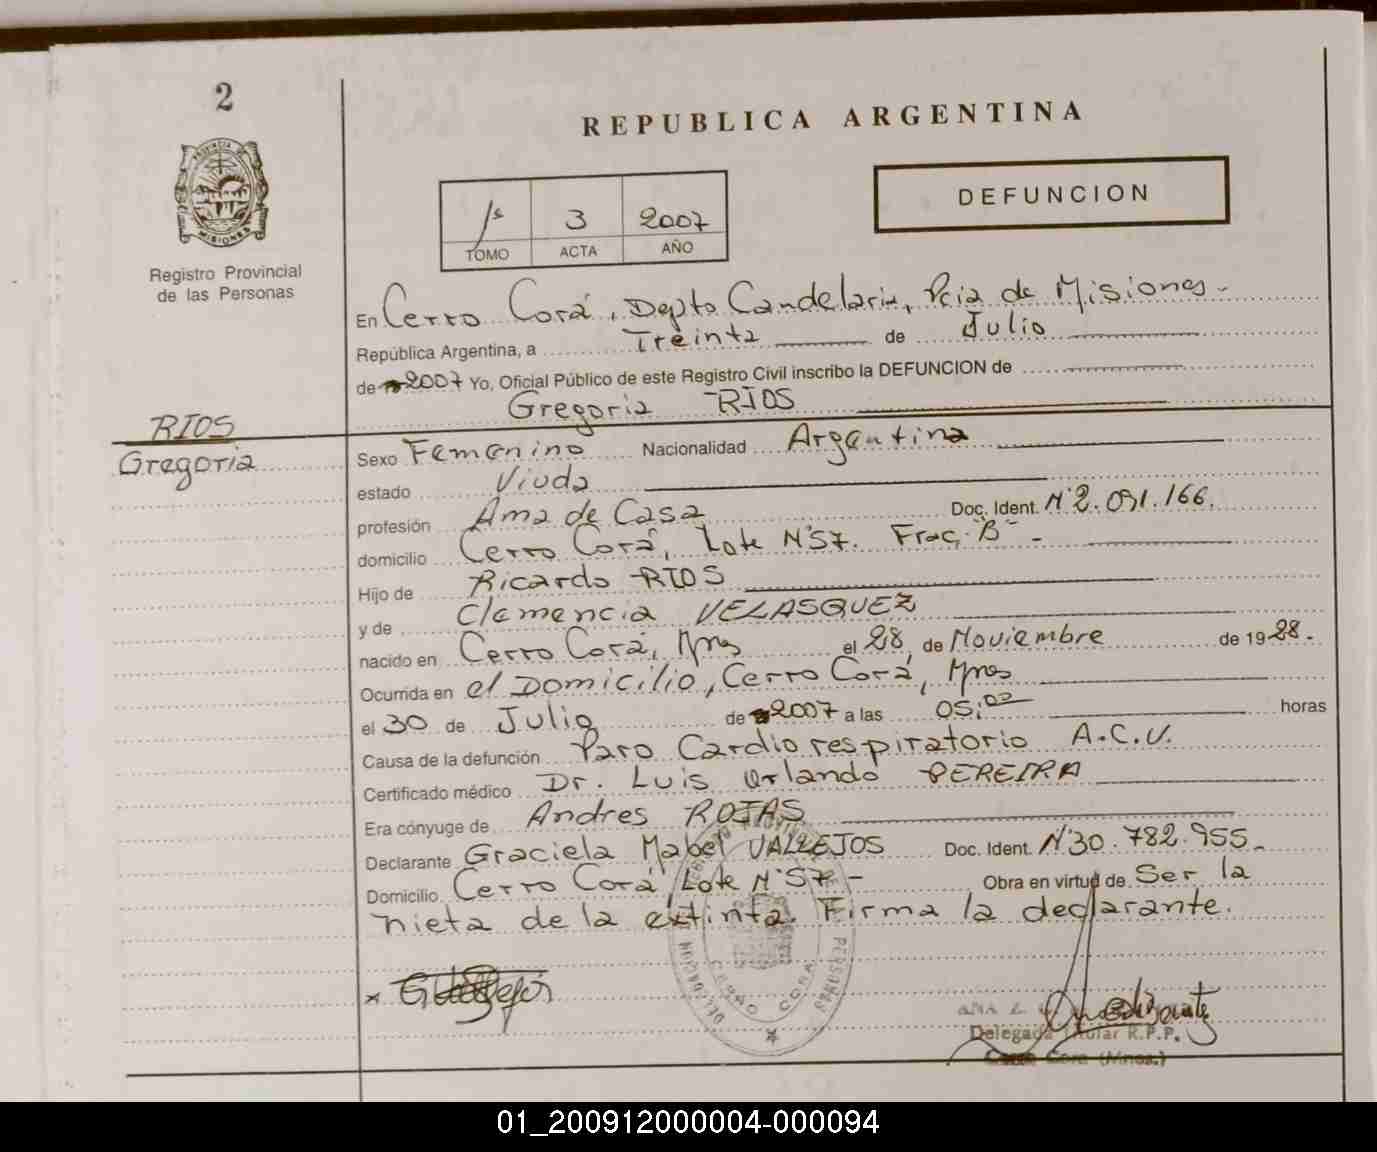 2
PROVINCIA DE
MISIONES
Registro Provincial
de las Personas
REPUBLICA ARGENTINA
DEFUNCION
1º 3 2007
TOMO ACTA AÑO
En Cerro Corá, Depto Candelaria, Pcia de Misiones.-
República Argentina, a Treinta de Julio
de 2007 Yo, Oficial Público de este Registro Civil inscribo la DEFUNCION de
Gregoria RIOS
RIOS
Gregoria
Sexo Femenino Nacionalidad Argentina
estado Viuda
profesión Ama de Casa Doc. Ident. Nº2.091.166.
domicilio Cerro Corá, Lote Nº57. Frac. "B" -
Hijo de Ricardo RIOS
y de Clemencia VELASQUEZ
nacido en Cerro Corá, Mnes el 28 de Noviembre de 1928.
Ocurrida en el Domicilio, Cerro Corá, Mnes
el 30 de Julio de 2007 a las 05:02 horas
Causa de la defunción Paro Cardiorespiratorio A.C.V.
Certificado médico Dr. Luis Orlando PEREIRA
Era cónyuge de Andres ROJAS
Declarante Graciela Mabel VALLEJOS Doc. Ident. Nº30.782.955.-
Domicilio Cerro Corá Lote Nº57 - Obra en virtud de Ser la
nieta de la extinta. Firma la declarante.
x GVallejos
DELEGACION
PERSONAS
CERRO CORA
ANA
Delegada Titular R.P.P.
Cerro Cora (Mnes.)
01_200912000004-000094